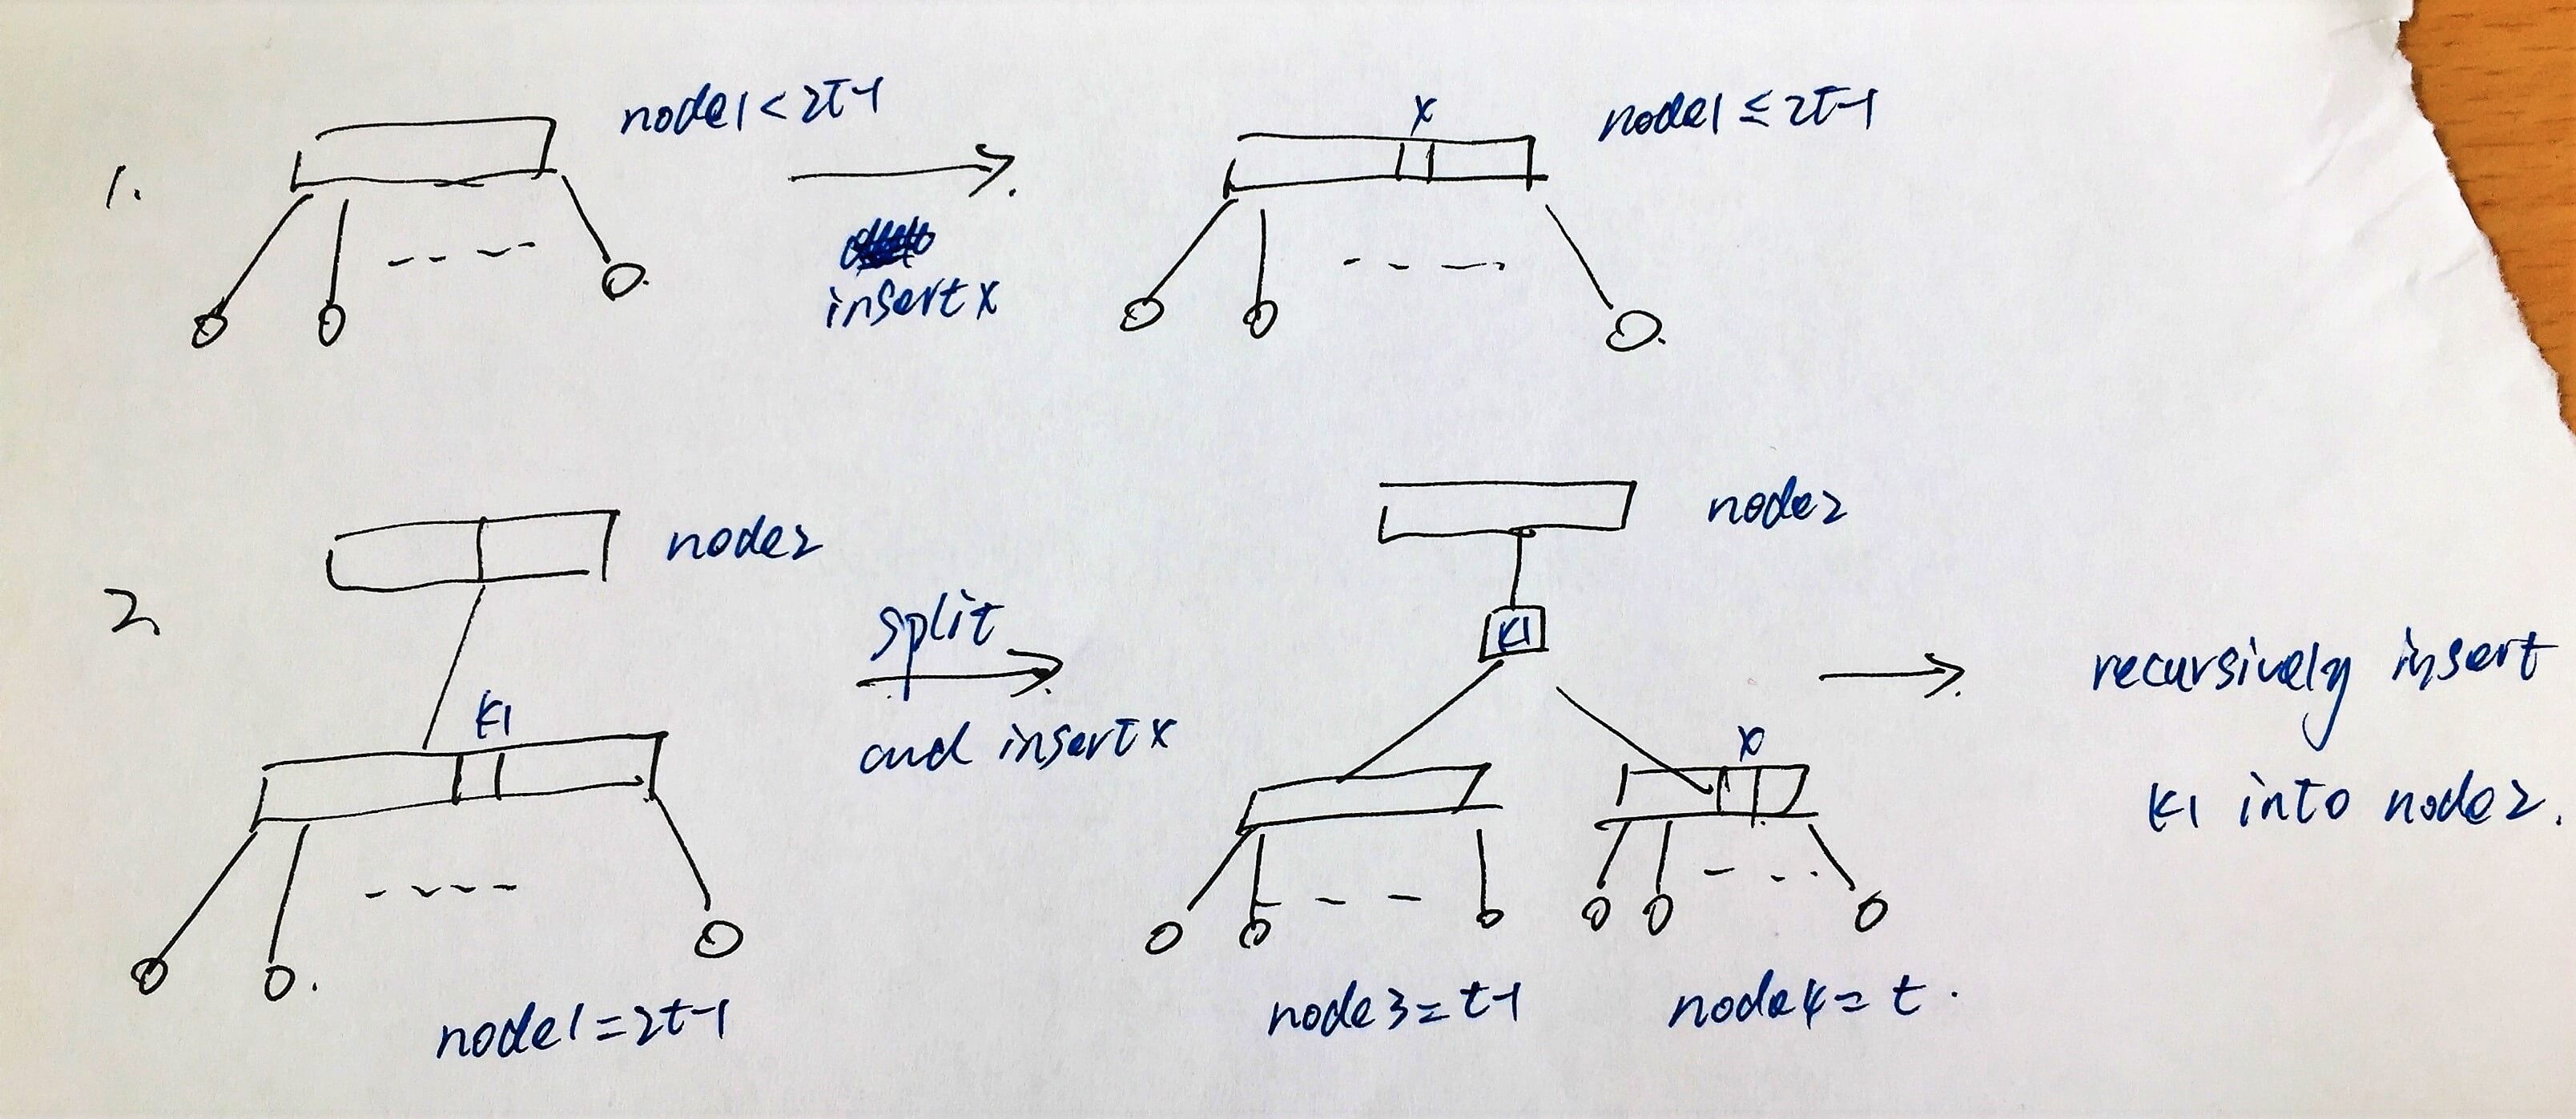 1.
node1 < 2t-1
insert x
x
node1 ≤ 2t-1
2.
node2
k1
node1 = 2t-1
split
and insert x
node2
k1
x
node3 = t-1
node4 = t.
recursively insert
k1 into node2.